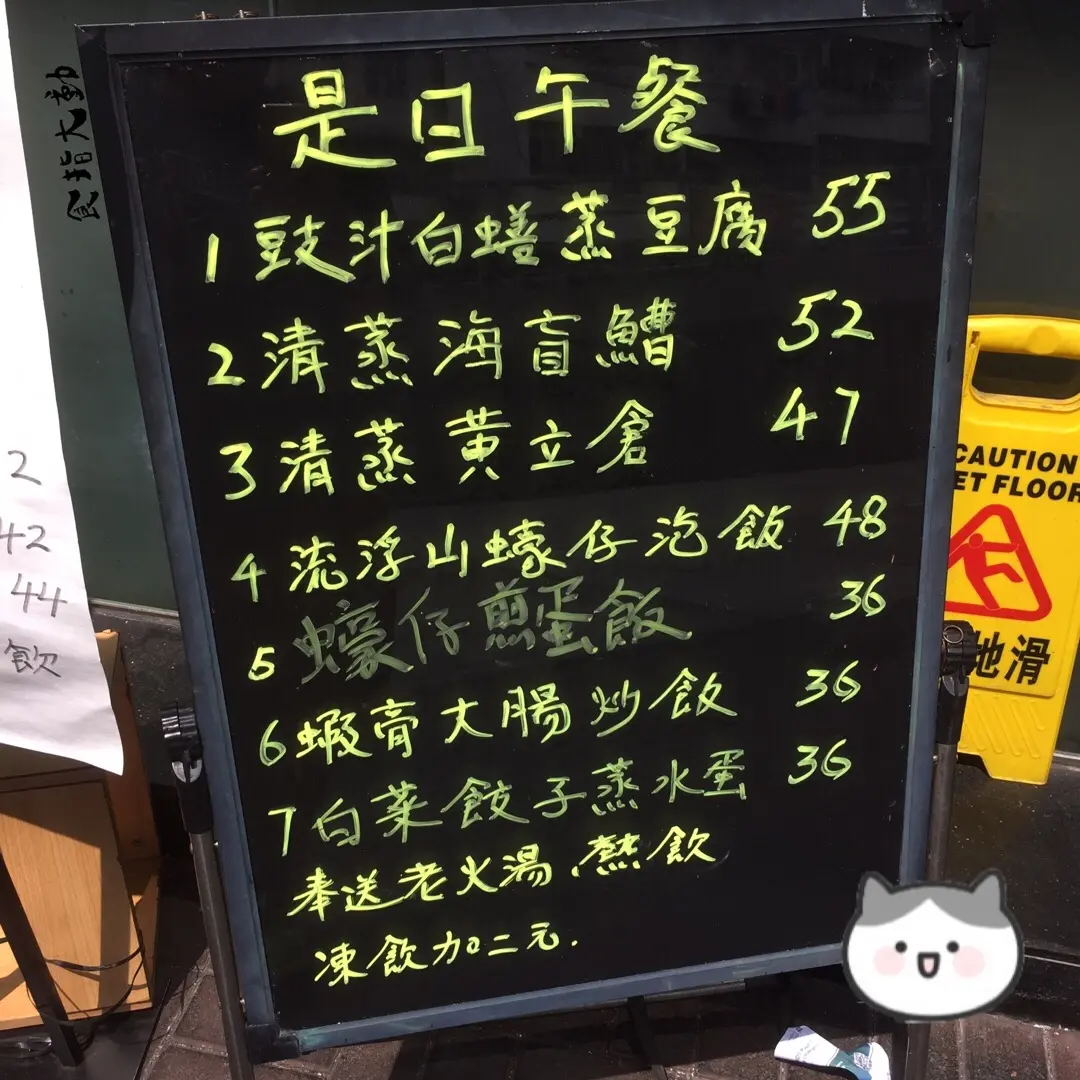 是日午餐
1 豉汁白蟮蒸豆腐 55
2 清蒸海盲鰽 52
3 清蒸黄立倉 47
4 流浮山蠔仔泡飯 48
5 蠔仔煎蛋飯 36
6 蝦膏大腸炒飯 36
7 白菜餃子蒸水蛋 36
奉送老火湯、熱飲
凍飲加二元.
食指大動
2
42
44
飲
CAUTION
ET FLOOR
地滑